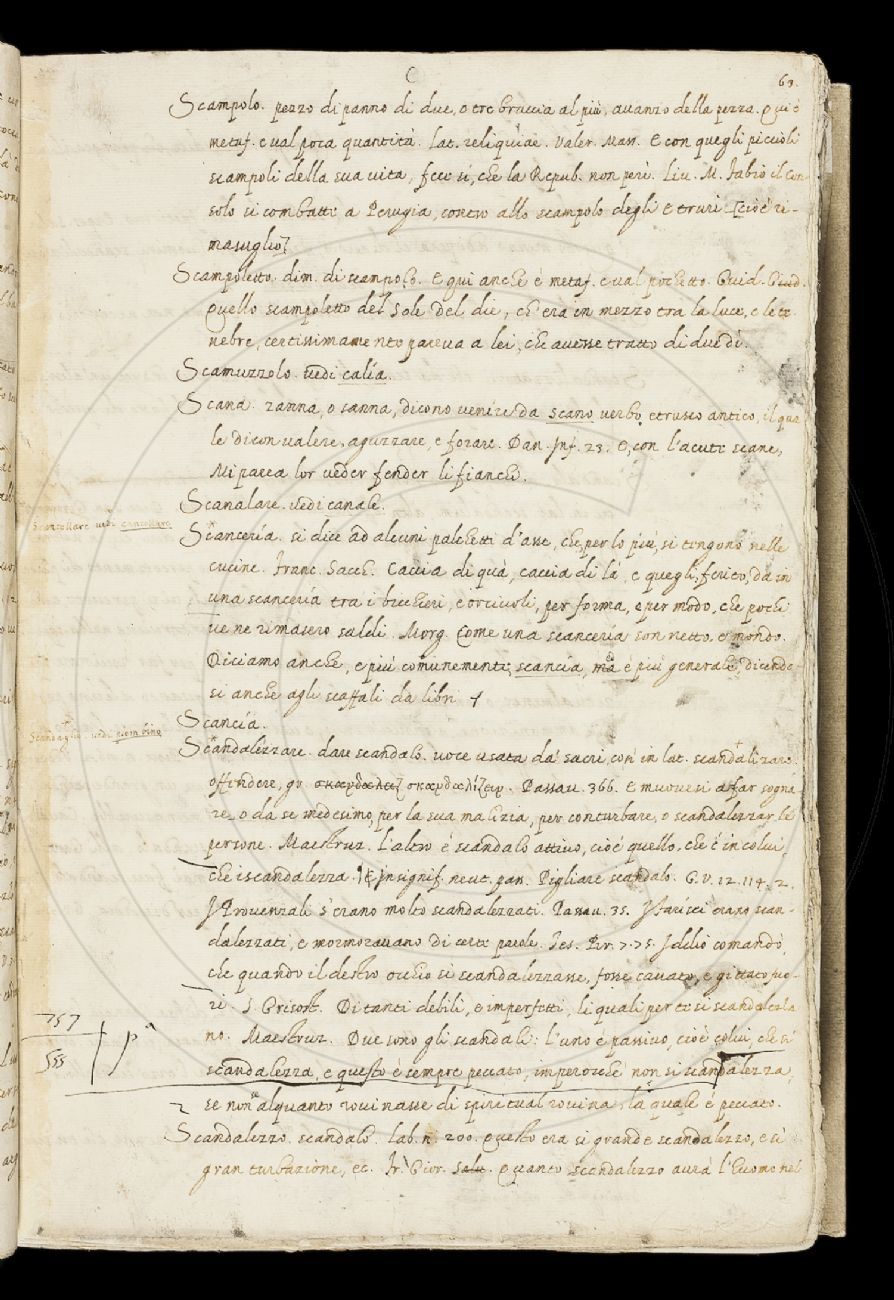 C
69.
Scampolo. pezzo di panno di due, o tre braccia al più, auanzo della pezza. Qui è
metaf. e ual poca quantità. lat. reliquiae. Valer. Mass. E con quegli piccioli
scampoli della sua uita, fece sì, che la Repub. non perì. Liv. M. Fabio il Con
solo si combattè a Perugia, contro allo scampolo degli Etruri [cioè ri-
masuglio]
Scampoletto. dim. di scampolo. E qui anche è metaf. e ual pochetto. Guid. Giud.
Quello scampoletto del Sole del die, ch'era in mezzo tra la luce, e le te
nebre, certissimamento pareua a lei, che auesse tratto di due dì.
Scamuzzolo. vedi calía.
Scana. zanna, o sanna, dicono uenire da scano uerbo etrusco antico, il qua
le dicon ualere, aguzzare, e forare. Dan. Inf. 23. E, con l'acute scane,
Mi parea lor ueder fender li fianchi.
Scanalare. uedi canale.
Scancellare uedi cancellare
Scancería. si dice ad alcuni palchetti d'asse, che, per lo più, si tengono nelle
cucine. Franc. Sacch. Caccia di quà, caccia di là, e quegli, ferito, dà in
una scancería tra i bicchieri, e orciuoli, per forma, e per modo, che pochi
ue ne rimasero saldi. Morg. Come una scancería son netto, e mondo.
Diciamo anche, e più comunemente, scancía, ma è più generale, dicendo-
si anche agli scaffali da libri
Scancía.
Scandaglio. uedi piombino
Scandalizzare. dare scandalo. uoce usata da' sacri, con' in lat. scandalizare
offendere, gr. σκανδαλίζειν. Passau. 366. E muouesi a far sogna-
re, o da se medesimo, per la sua malizia, per conturbare, o scandalezzar, le
persone. Maestruz. L'altro è scandalo attiuo, cioè quello, che è in colui,
che iscandalezza. E in signif. neut. pas. Pigliare scandalo. G. V. 12. 114. 2.
I Prouenzali s'erano molto scandalezzati. Passau. 35. I Farisei erano scan-
dalezzati, e mormorauano di certe parole. Tes. Br. 7. 75. Iddio comandò,
che quando il destro occhio si scandalezzasse, fosse cauato, e gittato fuo-
ri. S. Grisost. Di tanti debili, e imperfetti, li quali per te si scandaleza
no. Maestruz. Due sono gli scandali: l'uno è passiuo, cioè colui, che si
757
555
scandalezza, e questo è sempre peccato, imperocchè non si scandalezza,
se non alquanto rouinasse di spiritual rouina, la quale è peccato.
Scandalezzo. scandalo. Lab. n. 200. Questo era sì grande scandalezzo, e sì
gran turbazione, ec. Fr. Gior. Salu. Quanto scandalezzo aurà l'huomo nel